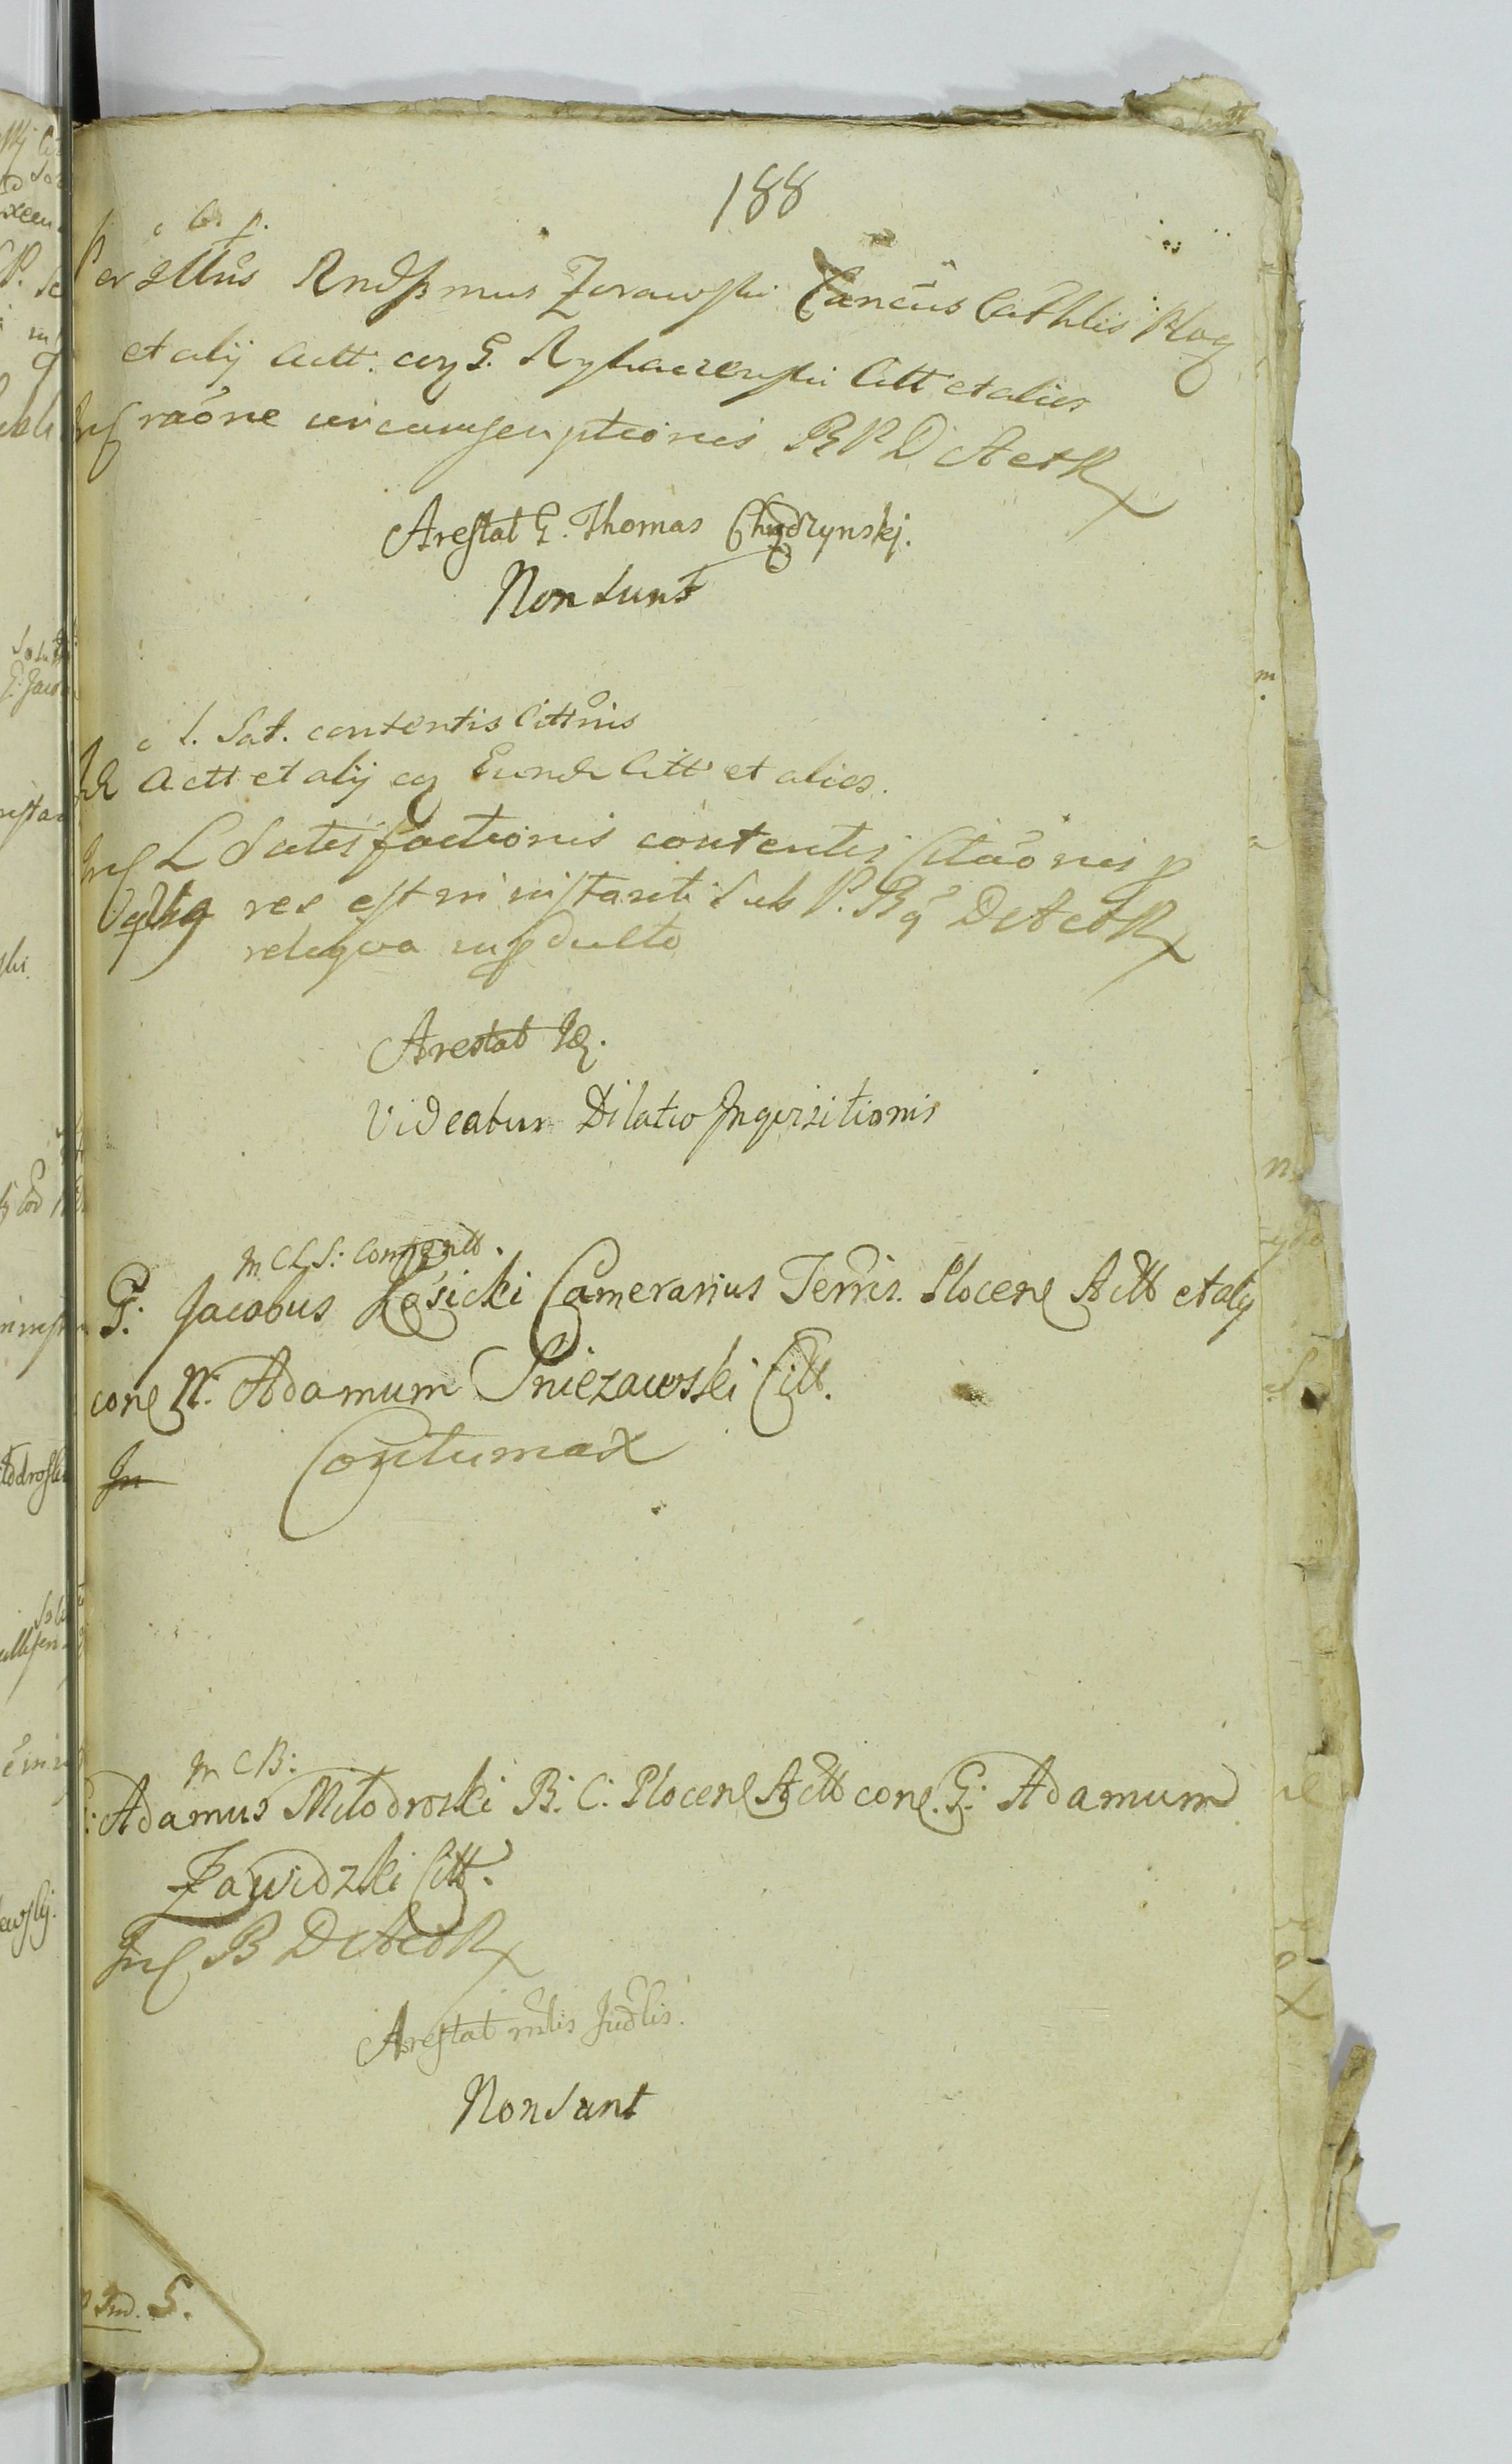 188
c B. p.
Per Illus Rndssmus Zurawski Cancus Cathlis Ploc
et alij Actt. cog G. Rybaczewski Citt et alios
Ins raõne circumscriptionis BPD Act R
Arestat G. Thomas Chądzynskj.
Non sunt
c l. Sat. contentis Cittnis
Id Actt et alij cog Eund Citt et alios.
Ins L Satisfactionis contentis Citaõnis p
res est in instanti sub P. B q D Act R
reliqva in indulto
Arestat Id.
Videatur Dilatio Inqvisitionis
In C L S: Contentt.
G. Jacobus Łęsicki Camerarius Terris. Plocen Actt et alij
con N. Adamum Sniezawski Citt.
In Contumax
In C B:
G: Adamus Miłodroski B: C: Plocen Actt con G: Adamum
Zawidzki Citt.
Ins B D Act R
Arestat mlis Judlis.
Non sunt
Ind. 5.